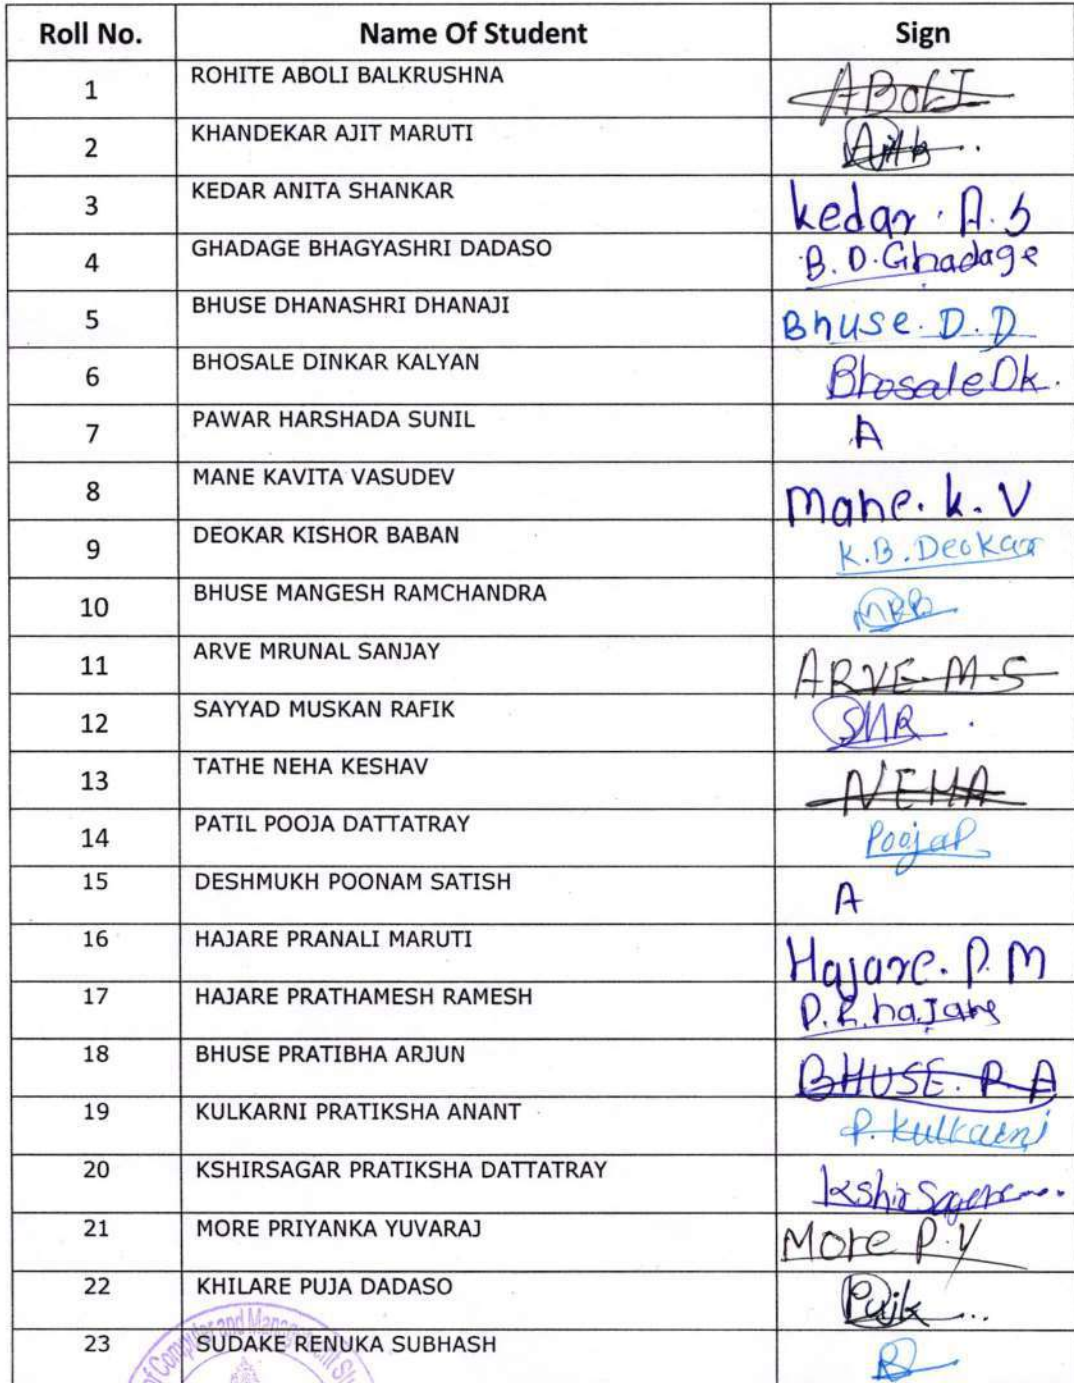 Roll No. Name Of Student Sign
1 ROHITE ABOLI BALKRUSHNA ABOLI
2 KHANDEKAR AJIT MARUTI
3 KEDAR ANITA SHANKAR kedar. A. S
4 GHADAGE BHAGYASHRI DADASO B. D. Ghadage
5 BHUSE DHANASHRI DHANAJI Bhuse. D. D
6 BHOSALE DINKAR KALYAN Bhosale Dk.
7 PAWAR HARSHADA SUNIL A
8 MANE KAVITA VASUDEV Mane. k. V
9 DEOKAR KISHOR BABAN K.B. Deokar
10 BHUSE MANGESH RAMCHANDRA
11 ARVE MRUNAL SANJAY ARVE M.S
12 SAYYAD MUSKAN RAFIK SMR
13 TATHE NEHA KESHAV NEHA
14 PATIL POOJA DATTATRAY PoojaP
15 DESHMUKH POONAM SATISH A
16 HAJARE PRANALI MARUTI Hajare. P. M
17 HAJARE PRATHAMESH RAMESH P. R. hajare
18 BHUSE PRATIBHA ARJUN BHUSE. P A
19 KULKARNI PRATIKSHA ANANT P. Kulkarni
20 KSHIRSAGAR PRATIKSHA DATTATRAY
21 MORE PRIYANKA YUVARAJ More P.Y
22 KHILARE PUJA DADASO
23 SUDAKE RENUKA SUBHASH
of Computer and Management